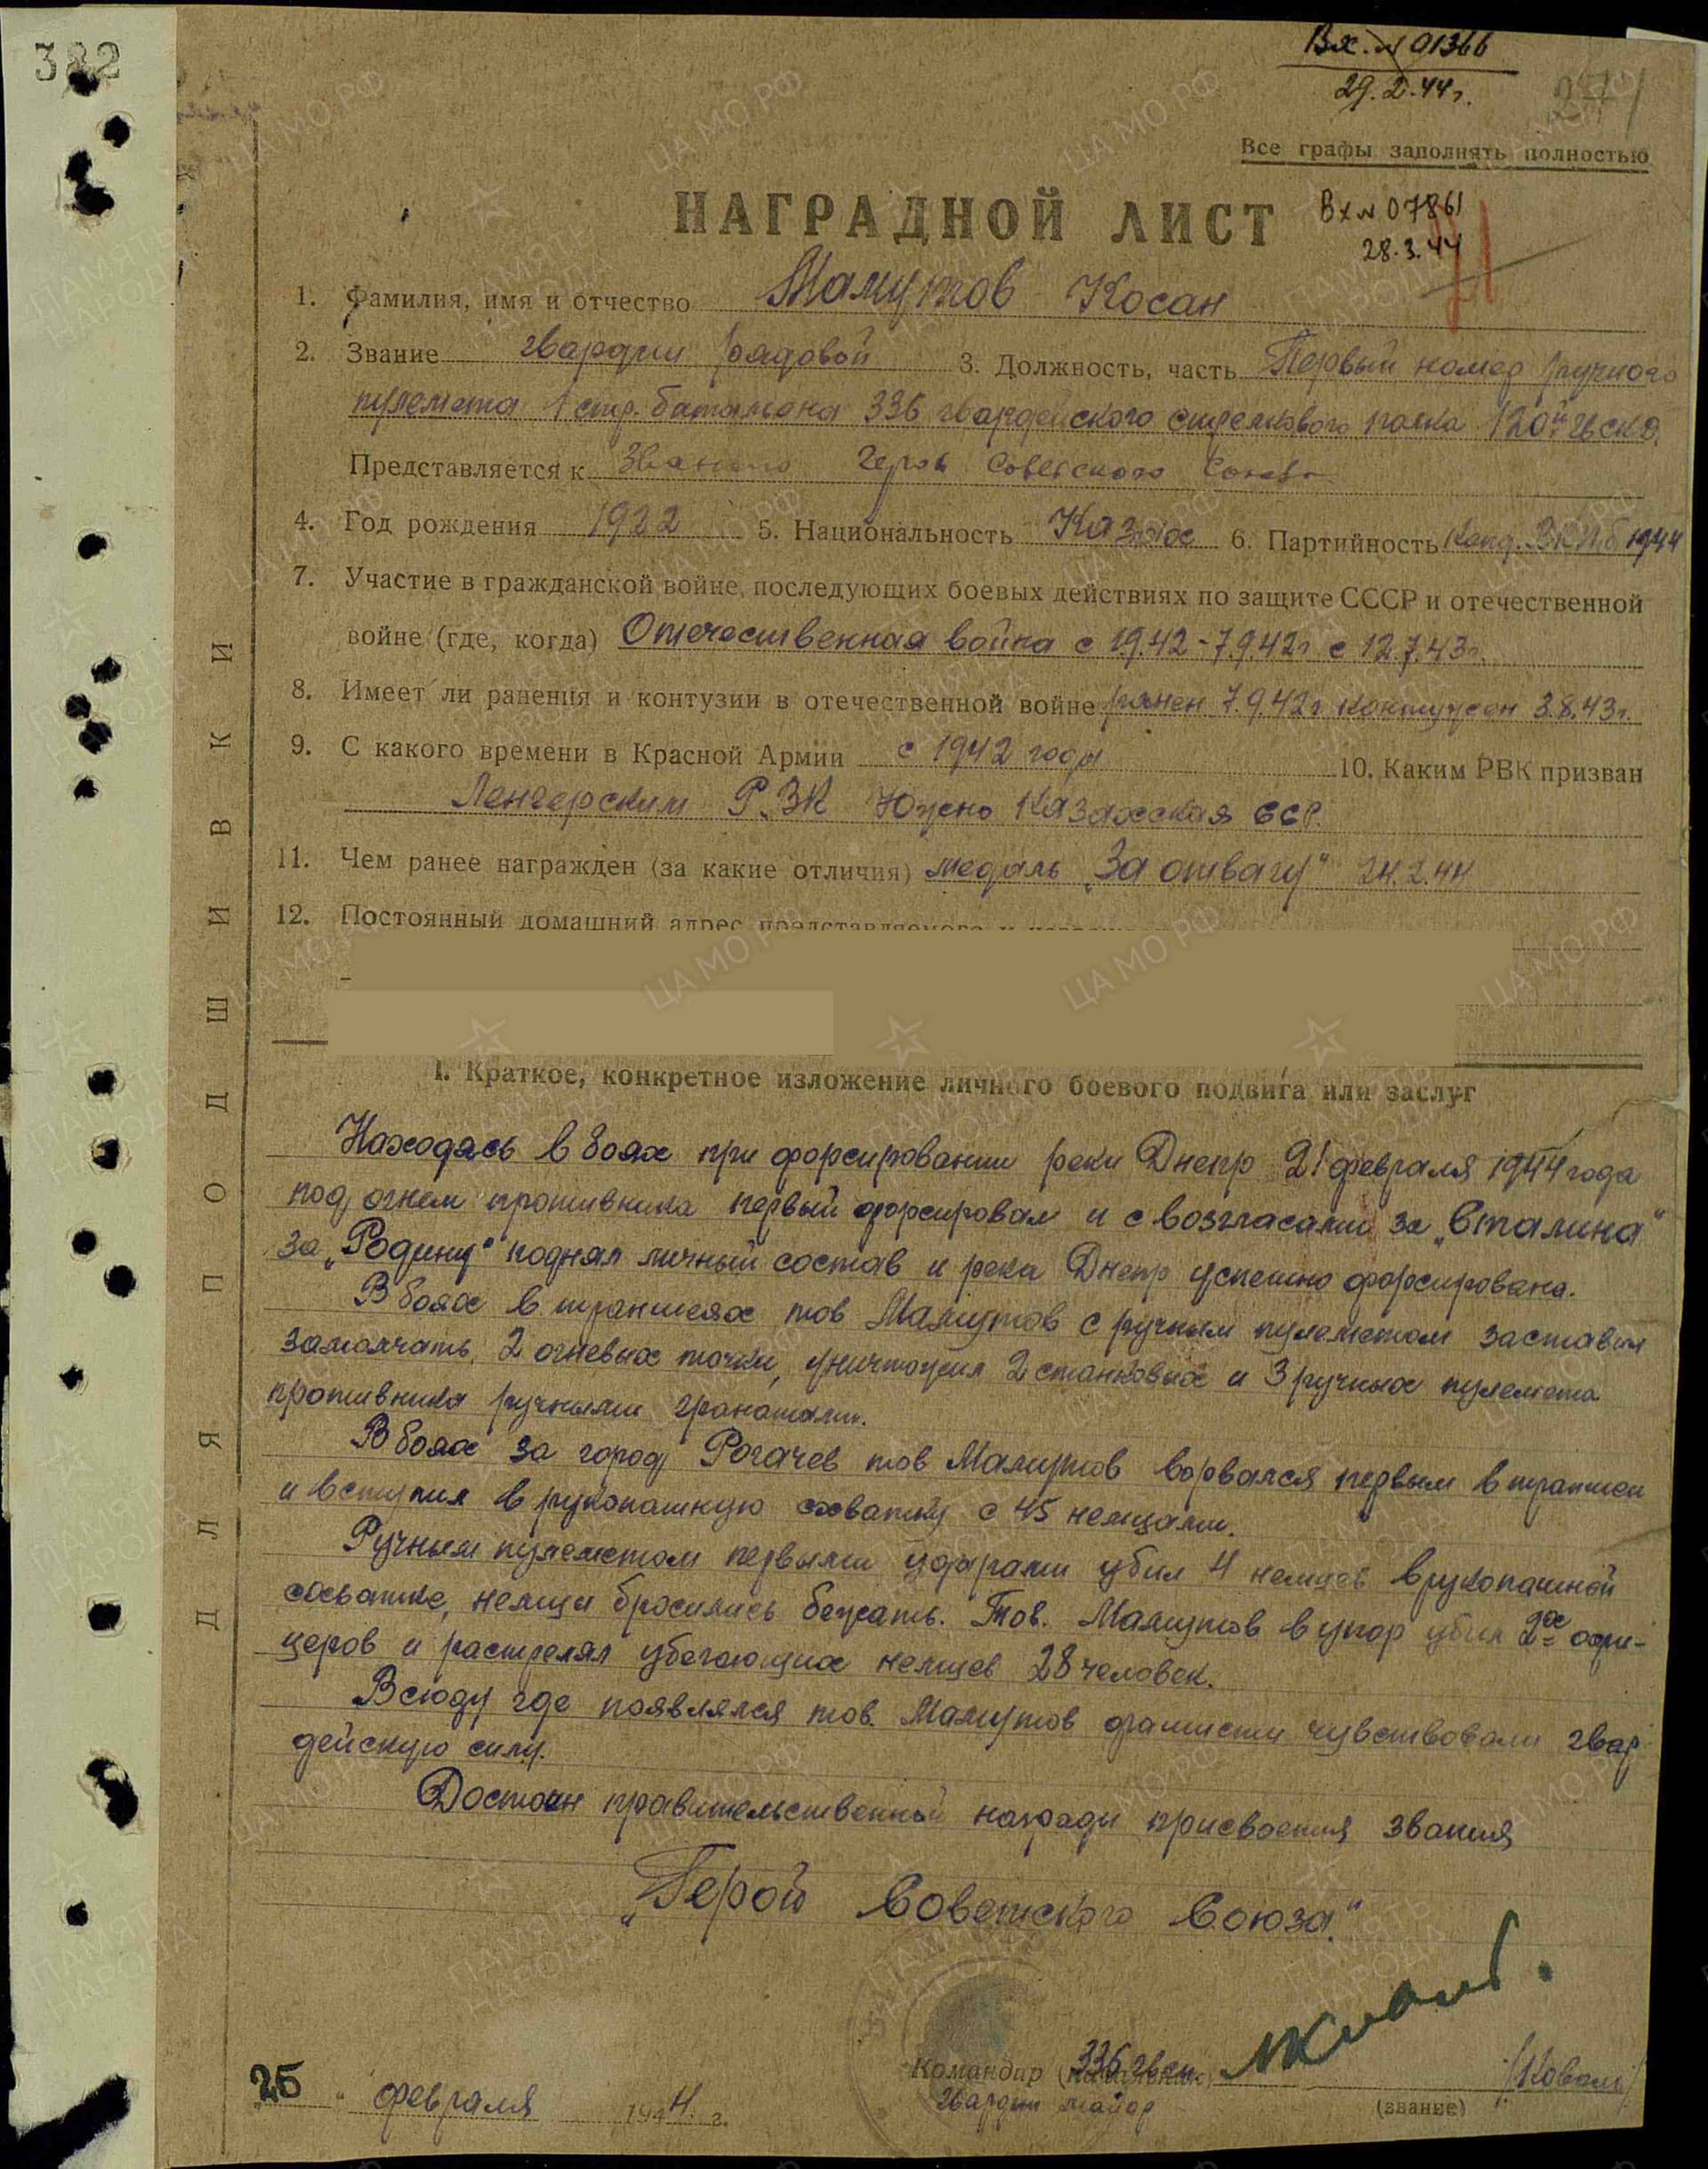 382
Вх. № 01366
29.2.44 г.
Все графы заполнять полностью
НАГРАДНОЙ ЛИСТ
Вх № 07861
28.3.44
1. Фамилия, имя и отчество Мамутов Косан
2. Звание гвардии рядовой 3. Должность, часть Первый номер ручного
пулемета 1 стр. батальона 336 гвардейского стрелкового полка 120й гв скд.
Представляется к званию Героя Советского Союза
4. Год рождения 1922 5. Национальность Казах 6. Партийность Канд. ВКПб 1944
7. Участие в гражданской войне, последующих боевых действиях по защите СССР и отечественной
войне (где, когда) Отечественная война с 1.9.42-7.9.42г с 12.7.43г.
8. Имеет ли ранения и контузии в отечественной войне ранен 7.9.42г контужен 3.8.43г.
9. С какого времени в Красной Армии с 1942 года 10. Каким РВК призван
Ленгерским РВК Южно Казахская ССР.
11. Чем ранее награжден (за какие отличия) медаль „За отвагу" 24.2.44
12. Постоянный домашний адрес представляемого к
I. Краткое, конкретное изложение личного боевого подвига или заслуг
Находясь в боях при форсировании реки Днепр 21 февраля 1944 года
под огнем противника первый форсировал и с возгласами за „Сталина"
за „Родину" поднял личный состав и река Днепр успешно форсирована.
В боях в траншеях тов Мамутов с ручным пулеметом заставил
замолчать 2 огневых точки, уничтожил 2 станковых и 3 ручных пулемета
противника ручными гранатами.
В боях за город Рогачев тов Мамутов ворвался первым в траншеи
и вступил в рукопашную схватку с 45 немцами.
Ручным пулеметом первыми ударами убил 4 немцев в рукопашной
схватке, немцы бросились бежать. Тов. Мамутов в упор убил 2х офи-
церов и растрелял убегающих немцев 28 человек.
Всюду где появлялся тов. Мамутов фашисты чувствовали гвар-
дейскую силу.
Достоин правительственной награды присвоения звания
„Герой Советского Союза."
Командир (начальник) 336 гв сп.
гвардии майор
/Коваль/
(звание)
25 февраля 1944 г.
ДЛЯ ПОДШИВКИ
ЦА МО РФ
ПАМЯТЬ НАРОДА